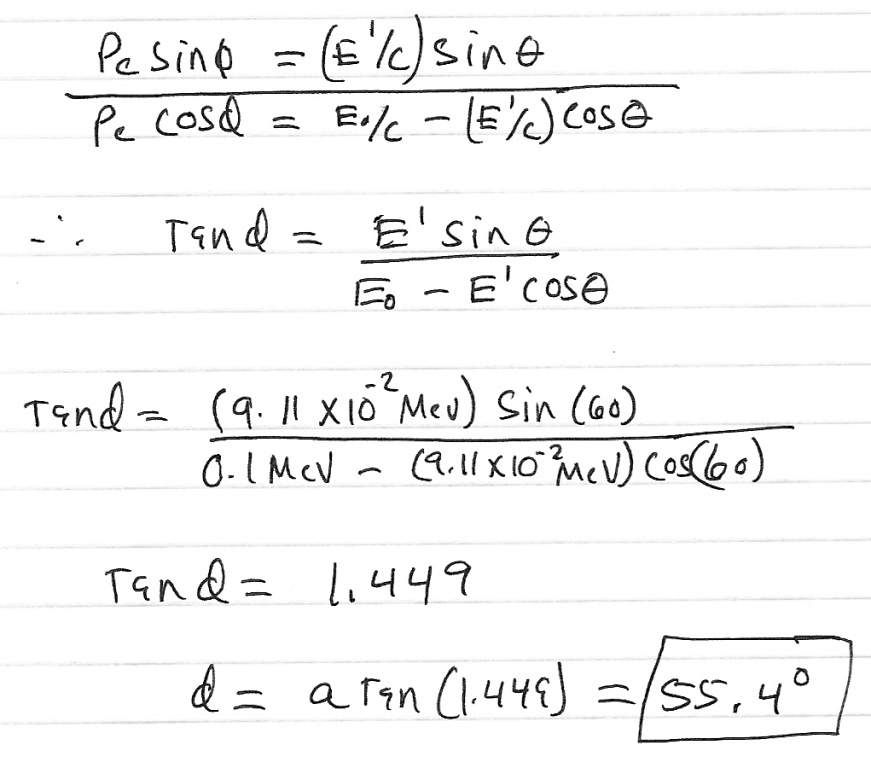 Pe sinϕ = (E'/c) sinθ
Pe cosϕ = E₀/c − (E'/c) cosθ
∴ Tanϕ = E' sinθ
E₀ − E' cosθ
Tanϕ = (9.11 x 10⁻² MeV) Sin (60)
0.1 MeV − (9.11 x 10⁻² MeV) Cos(60)
Tanϕ = 1.449
ϕ = aTan (1.449) = 55.4°